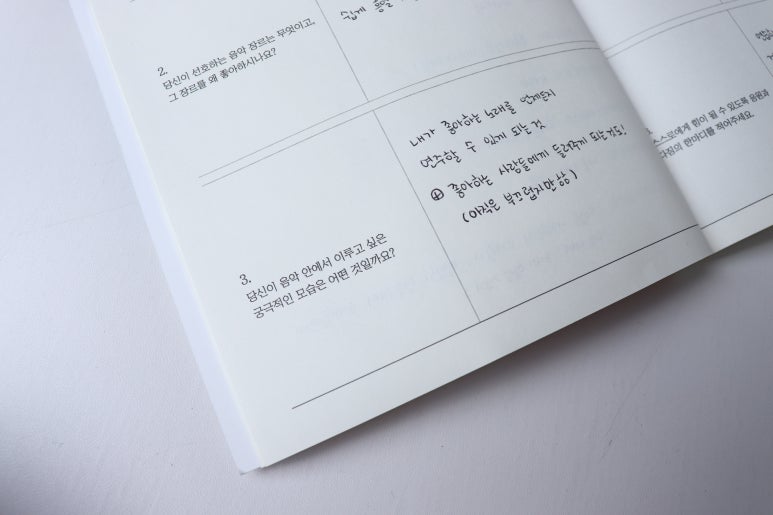 2.
당신이 선호하는 음악 장르는 무엇이고,
그 장르를 왜 좋아하시나요?
쉽게
3.
당신이 음악 안에서 이루고 싶은
궁극적인 모습은 어떤 것일까요?
내가 좋아하는 노래를 언제든지
연주할 수 있게 되는 것
⊕ 좋아하는 사람들에게 들려주게 되는것도!
(아직은 부끄럽지만상)
스스로에게 힘이 될 수 있도록 응원과
다짐의 한마디를 적어주세요.